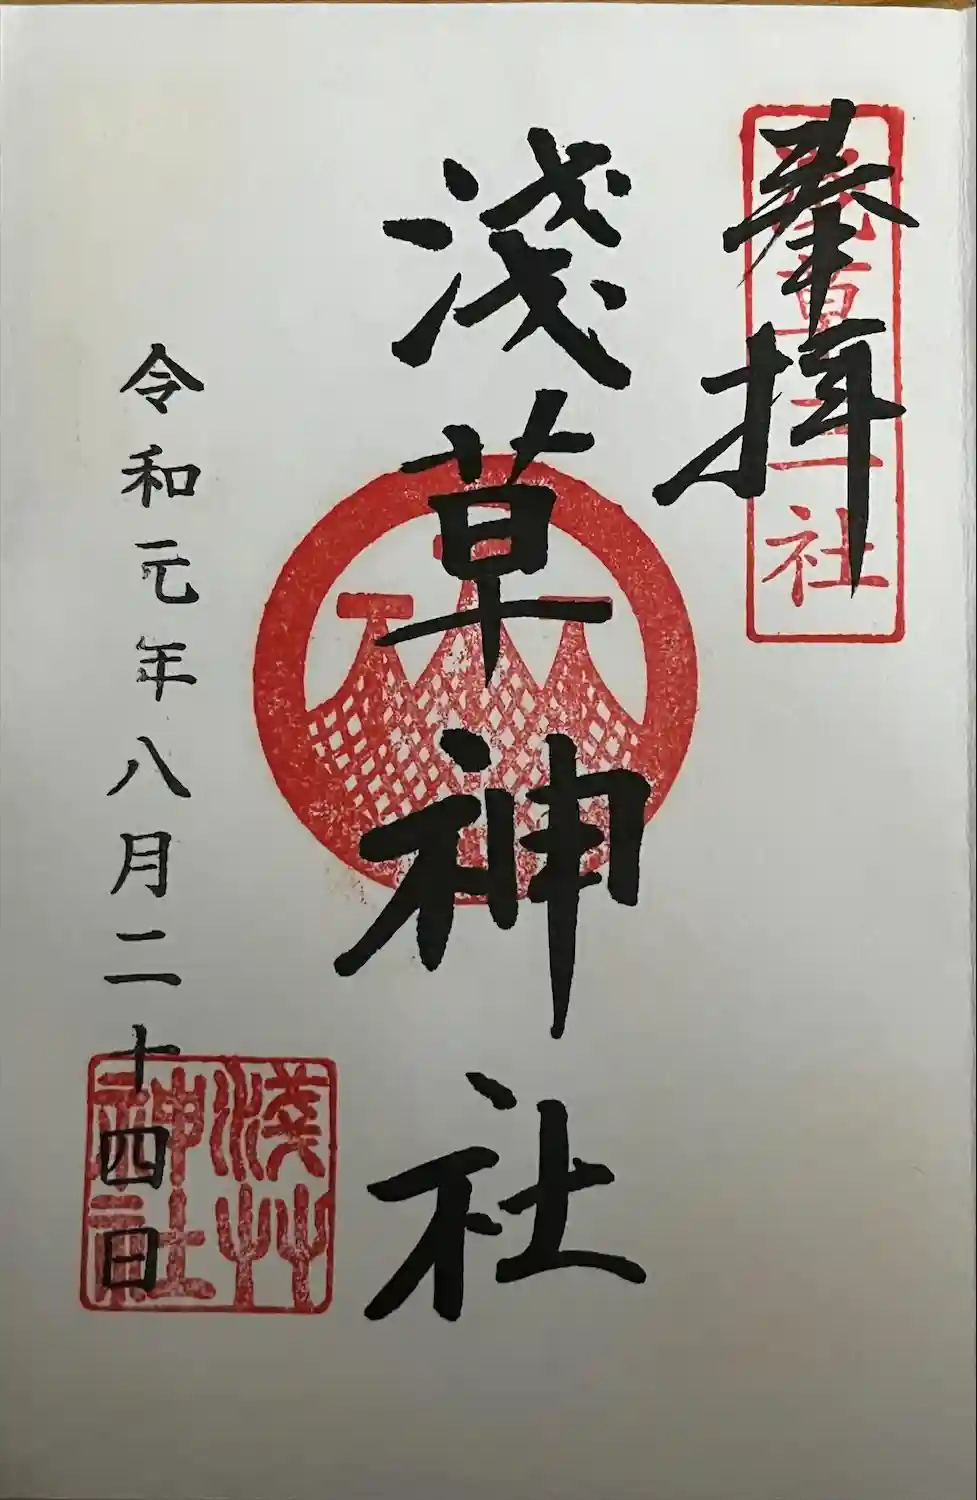 奉拝
浅草三社
淺草神社
令和元年八月二十四日
淺艸
神社